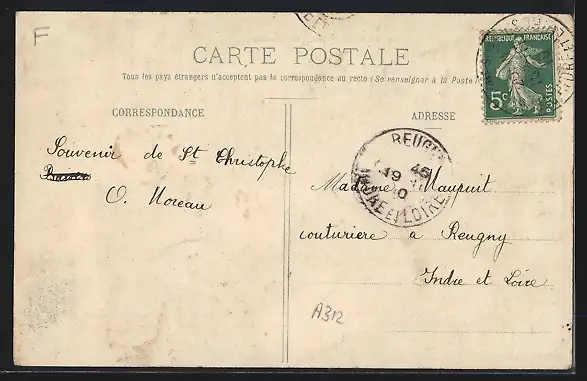 F
CARTE POSTALE
Tous les pays étrangers n'acceptent pas la correspondance au recto (Se renseigner à la Poste)
RÉPUBLIQUE FRANÇAISE
5c
POSTES
CORRESPONDANCE
ADRESSE
Souvenir de St Christophe
O. Moreau
REUGNY
19 45
10
INDRE ET LOIRE
Madame Maupuit
couturière à Reugny
Indre et Loire
A312